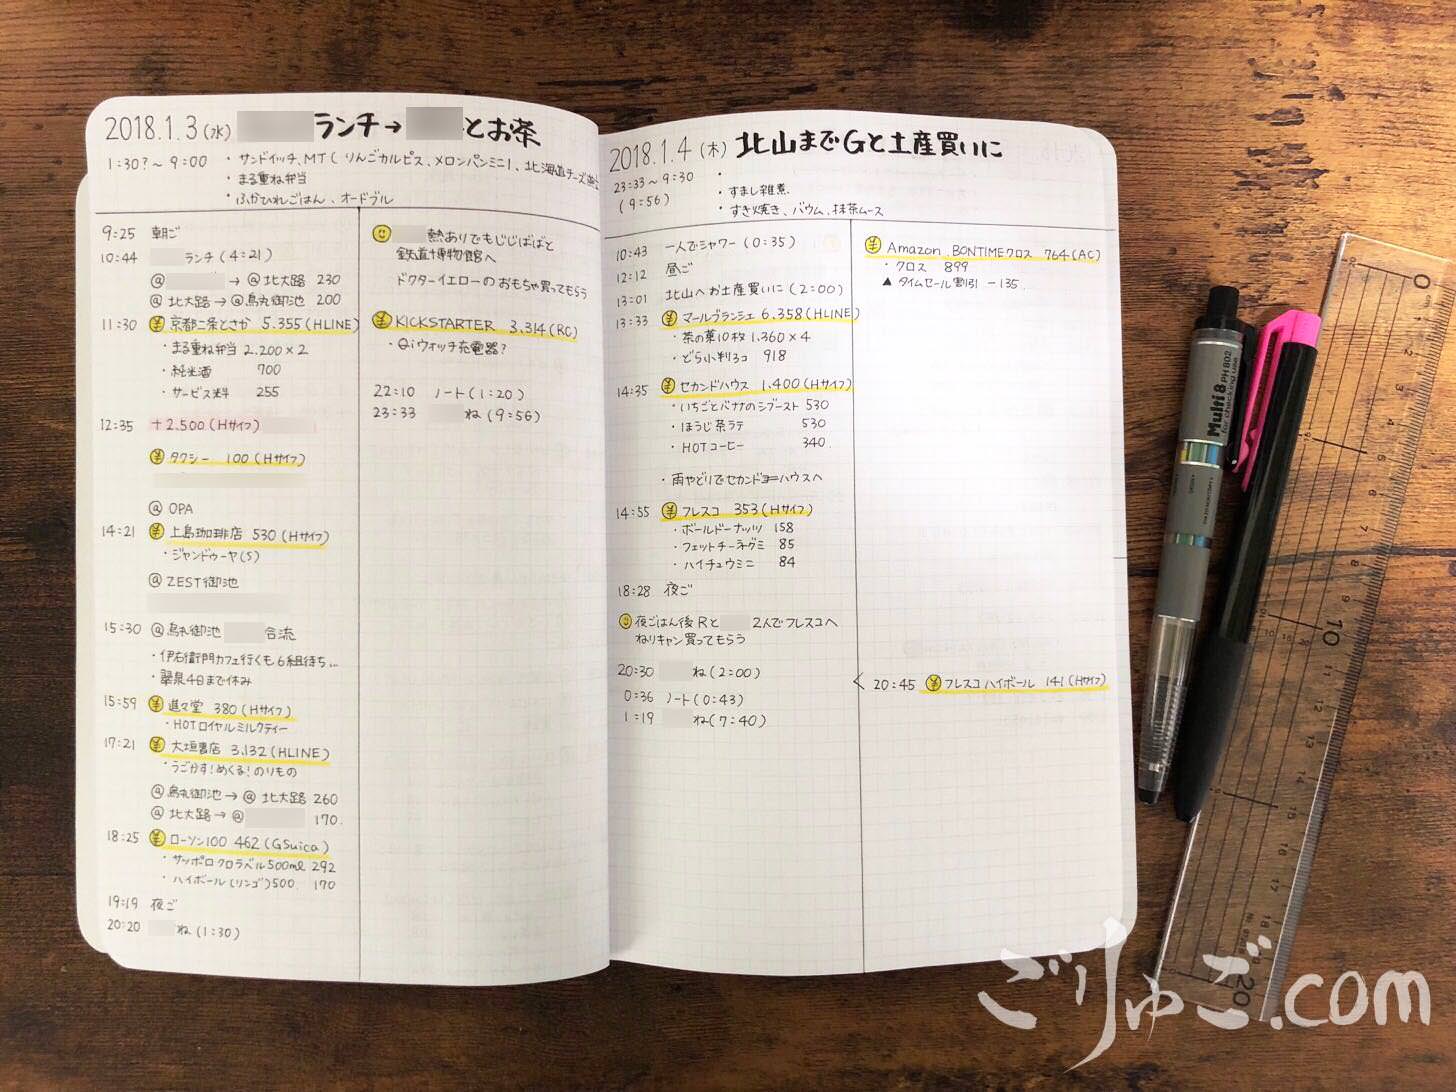 2018.1.3(水) ランチ→ とお茶
1:30?〜9:00
・サンドイッチ、MT(りんごカルピス、メロンパンミニ1、北海道チーズ
・まる重ね弁当
・ふかひれごはん、オードブル
9:25 朝ご
10:44 ランチ(4:21)
@ → @北大路 230
@北大路→@烏丸御池 200
11:30 ¥京都二条とさか 5.355(HLINE)
・まる重ね弁当 2.200×2
・純米酒 700
・サービス料 255
12:35 +2.500(Hサイフ)
¥タクシー 100(Hサイフ)
@OPA
14:21 ¥上島珈琲店 530(Hサイフ)
・ジャンドゥーヤ(S)
@ZEST御池
15:30 @烏丸御池 合流
・伊右衛門カフェ行くも6組待ち...
・翠泉4日まで休み
15:59 ¥進々堂 380(Hサイフ)
・HOTロイヤルミルクティー
17:21 ¥大垣書店 3.132(HLINE)
・うごかす!めくる!のりもの
@烏丸御池→@北大路 260
@北大路→@ 170.
18:25 ¥ローソン100 462(GSuica)
・サッポロクロラベル500ml 292
・ハイボール(リンゴ)500. 170
19:19 夜ご
20:20 ね(1:30)
熱ありでもじじばばと
鉄道博物館へ
ドクターイエローのおもちゃ買ってもらう
¥KICKSTARTER 3,314(RC)
・Qiウォッチ充電器?
22:10 ノート(1:20)
23:33 ね(9:56)
2018.1.4(木) 北山までGと土産買いに
23:33〜9:30
(9:56)
・
・すまし雑煮.
・すき焼き、バウム、抹茶ムース
10:43 一人でシャワー(0:35)
12:12 昼ご
13:01 北山へお土産買いに(2:00)
13:33 ¥マールブランシェ 6.358(HLINE)
・茶の菓10枚 1.360×4
・どら小判3コ 918
14:35 ¥セカンドハウス 1.400(Hサイフ)
・いちごとバナナのシブースト 530
・ほうじ茶ラテ 530
・HOTコーヒー 340.
・雨やどりでセカンドハウスへ
14:55 ¥フレスコ 353(Hサイフ)
・ボールドーナッツ 158
・フェットチーネグミ 85
・ハイチュウミニ 84
18:28 夜ご
夜ごはん後Rと 2人でフレスコへ
ねりキャン買ってもらう
20:30 ね(2:00)
0:36 ノート(0:43)
1:19 ね(7:40)
¥Amazon.BONTIMEクロス 764(AC)
・クロス 899
▲タイムセール割引 -135.
20:45 ¥フレスコ ハイボール 141(Hサイフ)
Multi 8 PH 802
for checking use
0
10
20
ごりゅご.com